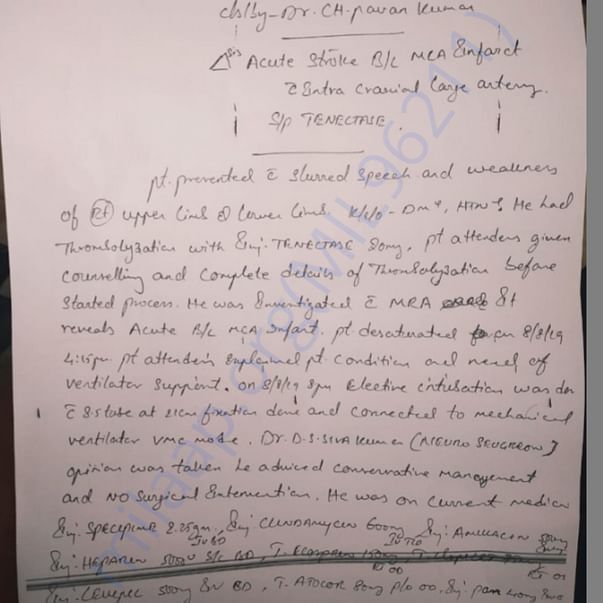 c/s/by - Dr. CH. pavan Kumar
Δsis Acute Stroke B/L MCA Infarct
c̄ Intra cranial large artery.
S/p TENECTASE.
pt. presented c̄ slurred speech and weakness
of Rt upper limb & lower limb. K/c/o - Dm+, HTN+. He had
Thrombolyzation with Inj. TENECTASE pt attenders given
counselling and complete details of Thrombolyzation before
started process. He was Investigated c̄ MRA It
reveals Acute B/L MCA Infart. pt desaturated on 8/8/19
4:15pm pt attenders Explained pt condition and need of
ventilator support. on 8/8/19 8pm Elective intubation was don
c̄ 8.5 tube at 21cm fixation done and connected to mechanical
ventilator VMC mode. Dr. D.S. SIVA Kumar (NEURO
opinion was taken he adviced conservative management
and NO surgical Intervention. He was on current medica
Inj: 2.25gm, Inj CLINDAMYCIN 600mg Inj: AMIKACIN 500mg
IV BD IV TID
Inj: HEPAREN 5000U S/C BD, T. Ecosprin 150mg,
Rt OD Rt OD
Inj: 500mg IV BD, T. ATOCOR 80mg p/o OD, Inj: pam 40mg
milaap.org(MIL962111)